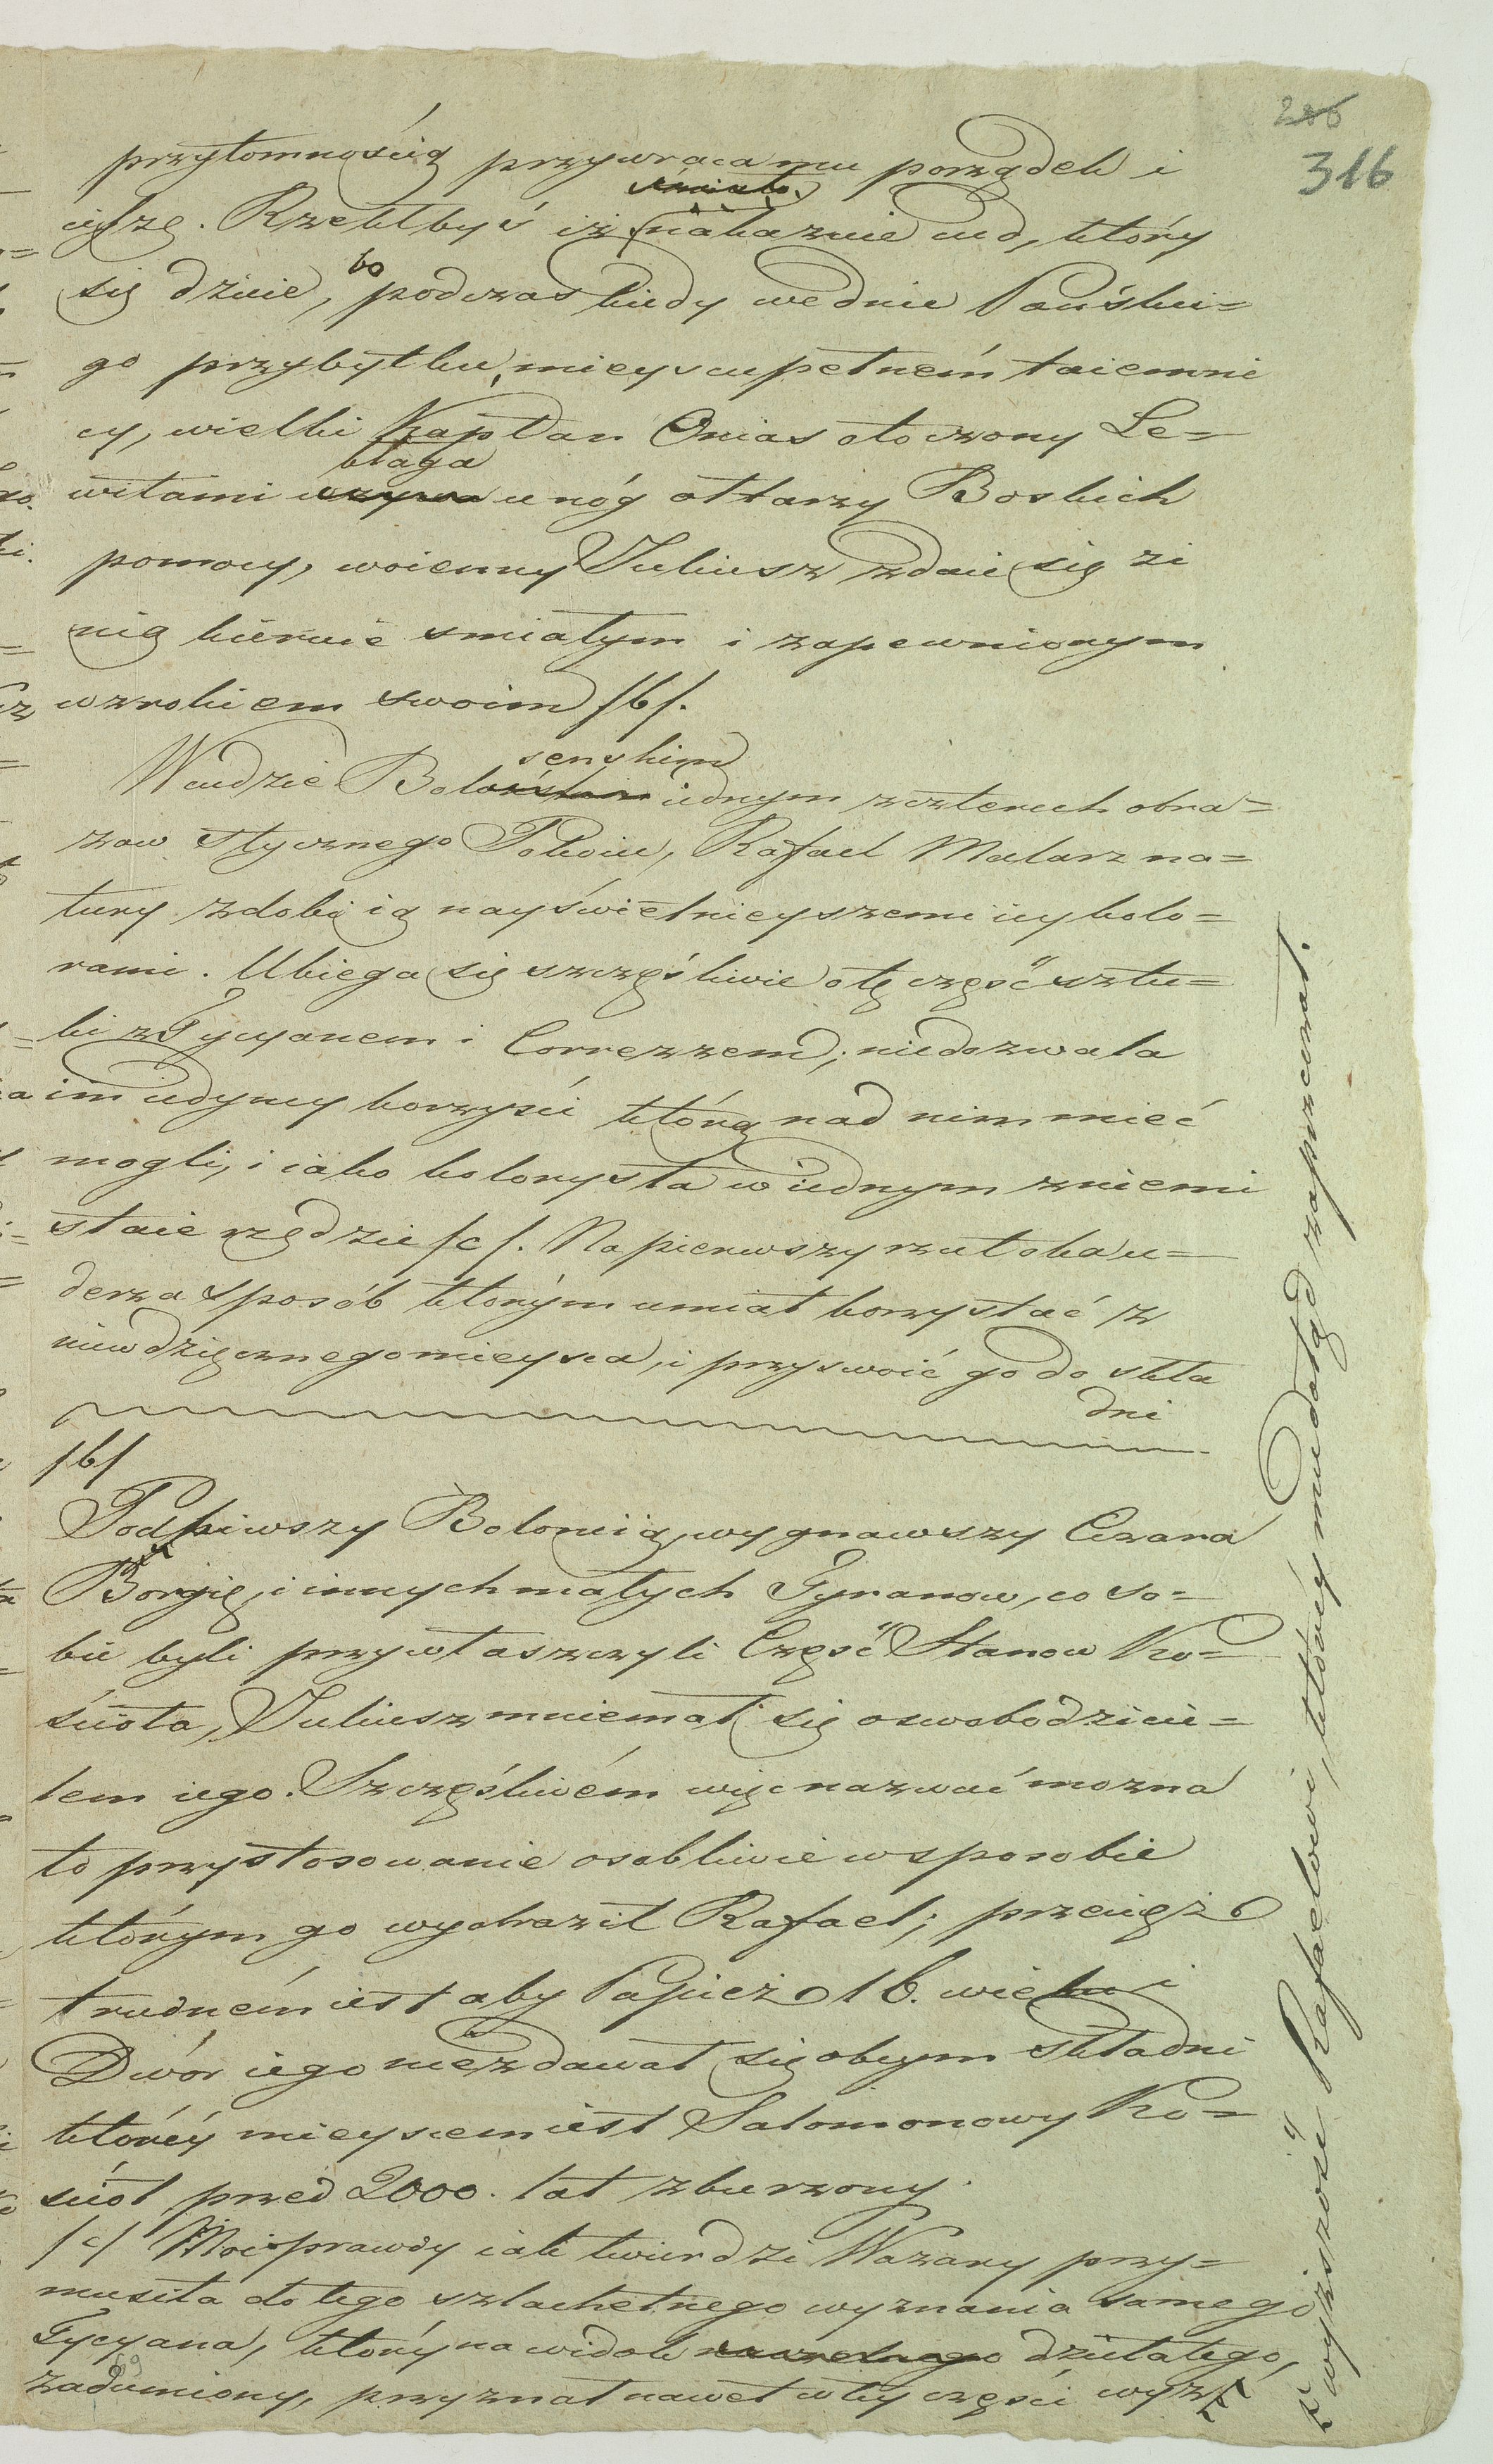 286
316
przytomnością przywraca mu porządek i
ciszę. Rzekłbyś iż nakaznie cud, który
się dzieie, bo podczas kiedy we dnie Pańskie=
go przybytku, mieyscu pełném taiemni
cy, wielki Kapłan Onias otoczony Le=
witami błaga u nóg ołtarzy Boskich
pomocy, woienny Juliusz zdaie się ze
nią kieruie smiałym i zapewnionym
wzrokiem swoim /b/.
W cudzie Bolsenskim iednym z czterech obra=
zow stycznego Pokoiu, Rafael Malarz na=
tury zdobi ią nayświetnieyszemi iey kolo=
rami. Ubiega się szczęśliwie o tę część sztu=
ki z Tycyanem i Correzzem; niedozwala
im iedyney korzyści którą nad nim mieć
mogli, i iako kolorysta w iednym z niemi
staie rzędzie /c/. Na pierwszy rzut oka u=
derza sposób którym umiał korzystać z
niewdzięcznego mieysca, i przyswoić go do skła
dni
/b/
Podbiwszy Bolonią, wygnawszy Cezara
Borgię, i innych małych Tyranow, co so=
bie byli przywłaszczyli Część Stanow Ko=
ścioła, Juliusz mniemał się oswobodzicie=
lem iego. Szczęśliwém więc nazwać mozna
to przystosowanie osobliwie w sposobie
którym go wyobraził Rafael; przecięż
trudném iest aby Papież 16. wieku i
Dwór iego niezdawał się obcym składni
któréy mieyscem iest Salomonowy Ko=
ściół przed 2000. lat zburzony.
/c/ Moc prawdy iak twierdzi Wazary przy=
musiła do tego szlachetnego wyznania samego
Tycyana, który na widok dzieła tego,
zadumiony, przyznał nawet w tey części wyż
wyższość Rafaelowi, któréy mu dotąd zaprzeczał.